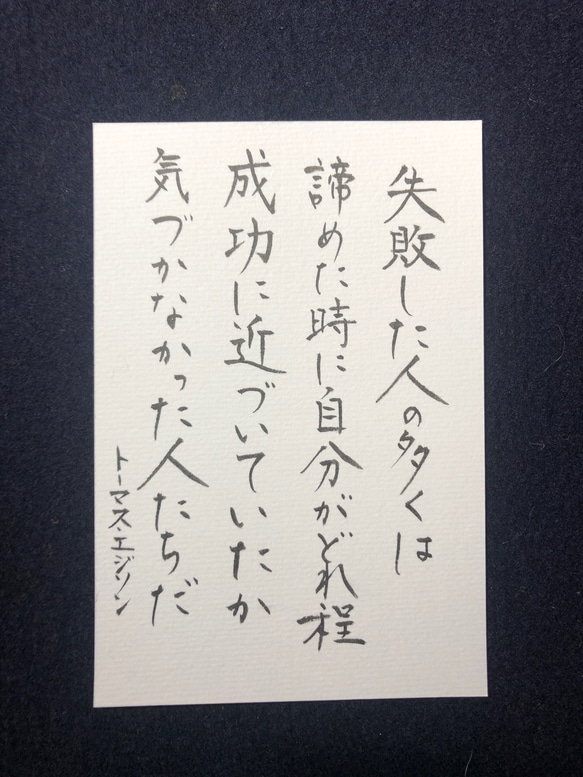 失敗した人の多くは
諦めた時に自分がどれ程
成功に近づいていたか
気づかなかった人たちだ
トーマス・エジソン